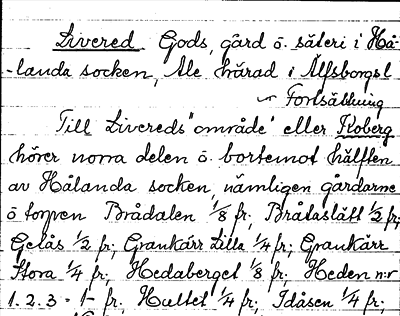 Livered. Gods, gård o. säteri i Hå-
-landa socken, Ale härad i Älfsborgs l
Fortsättning
Till Livereds "område" eller Koberg
hörer norra delen o. bortemot hälften
av Hålanda socken, nämligen gårdarne
o torpen Brådalen 1/8 fr; Bråtaslätt 1/2 fr;
Gelås 1/2 fr; Grankärr Lilla 1/4 fr; Grankärr
Stora 1/4 fr; Hedaberget 1/8 fr; Heden n:r
1. 2. 3 = 1- fr; Hultet 1/4 fr; Idåsen 1/4 fr;